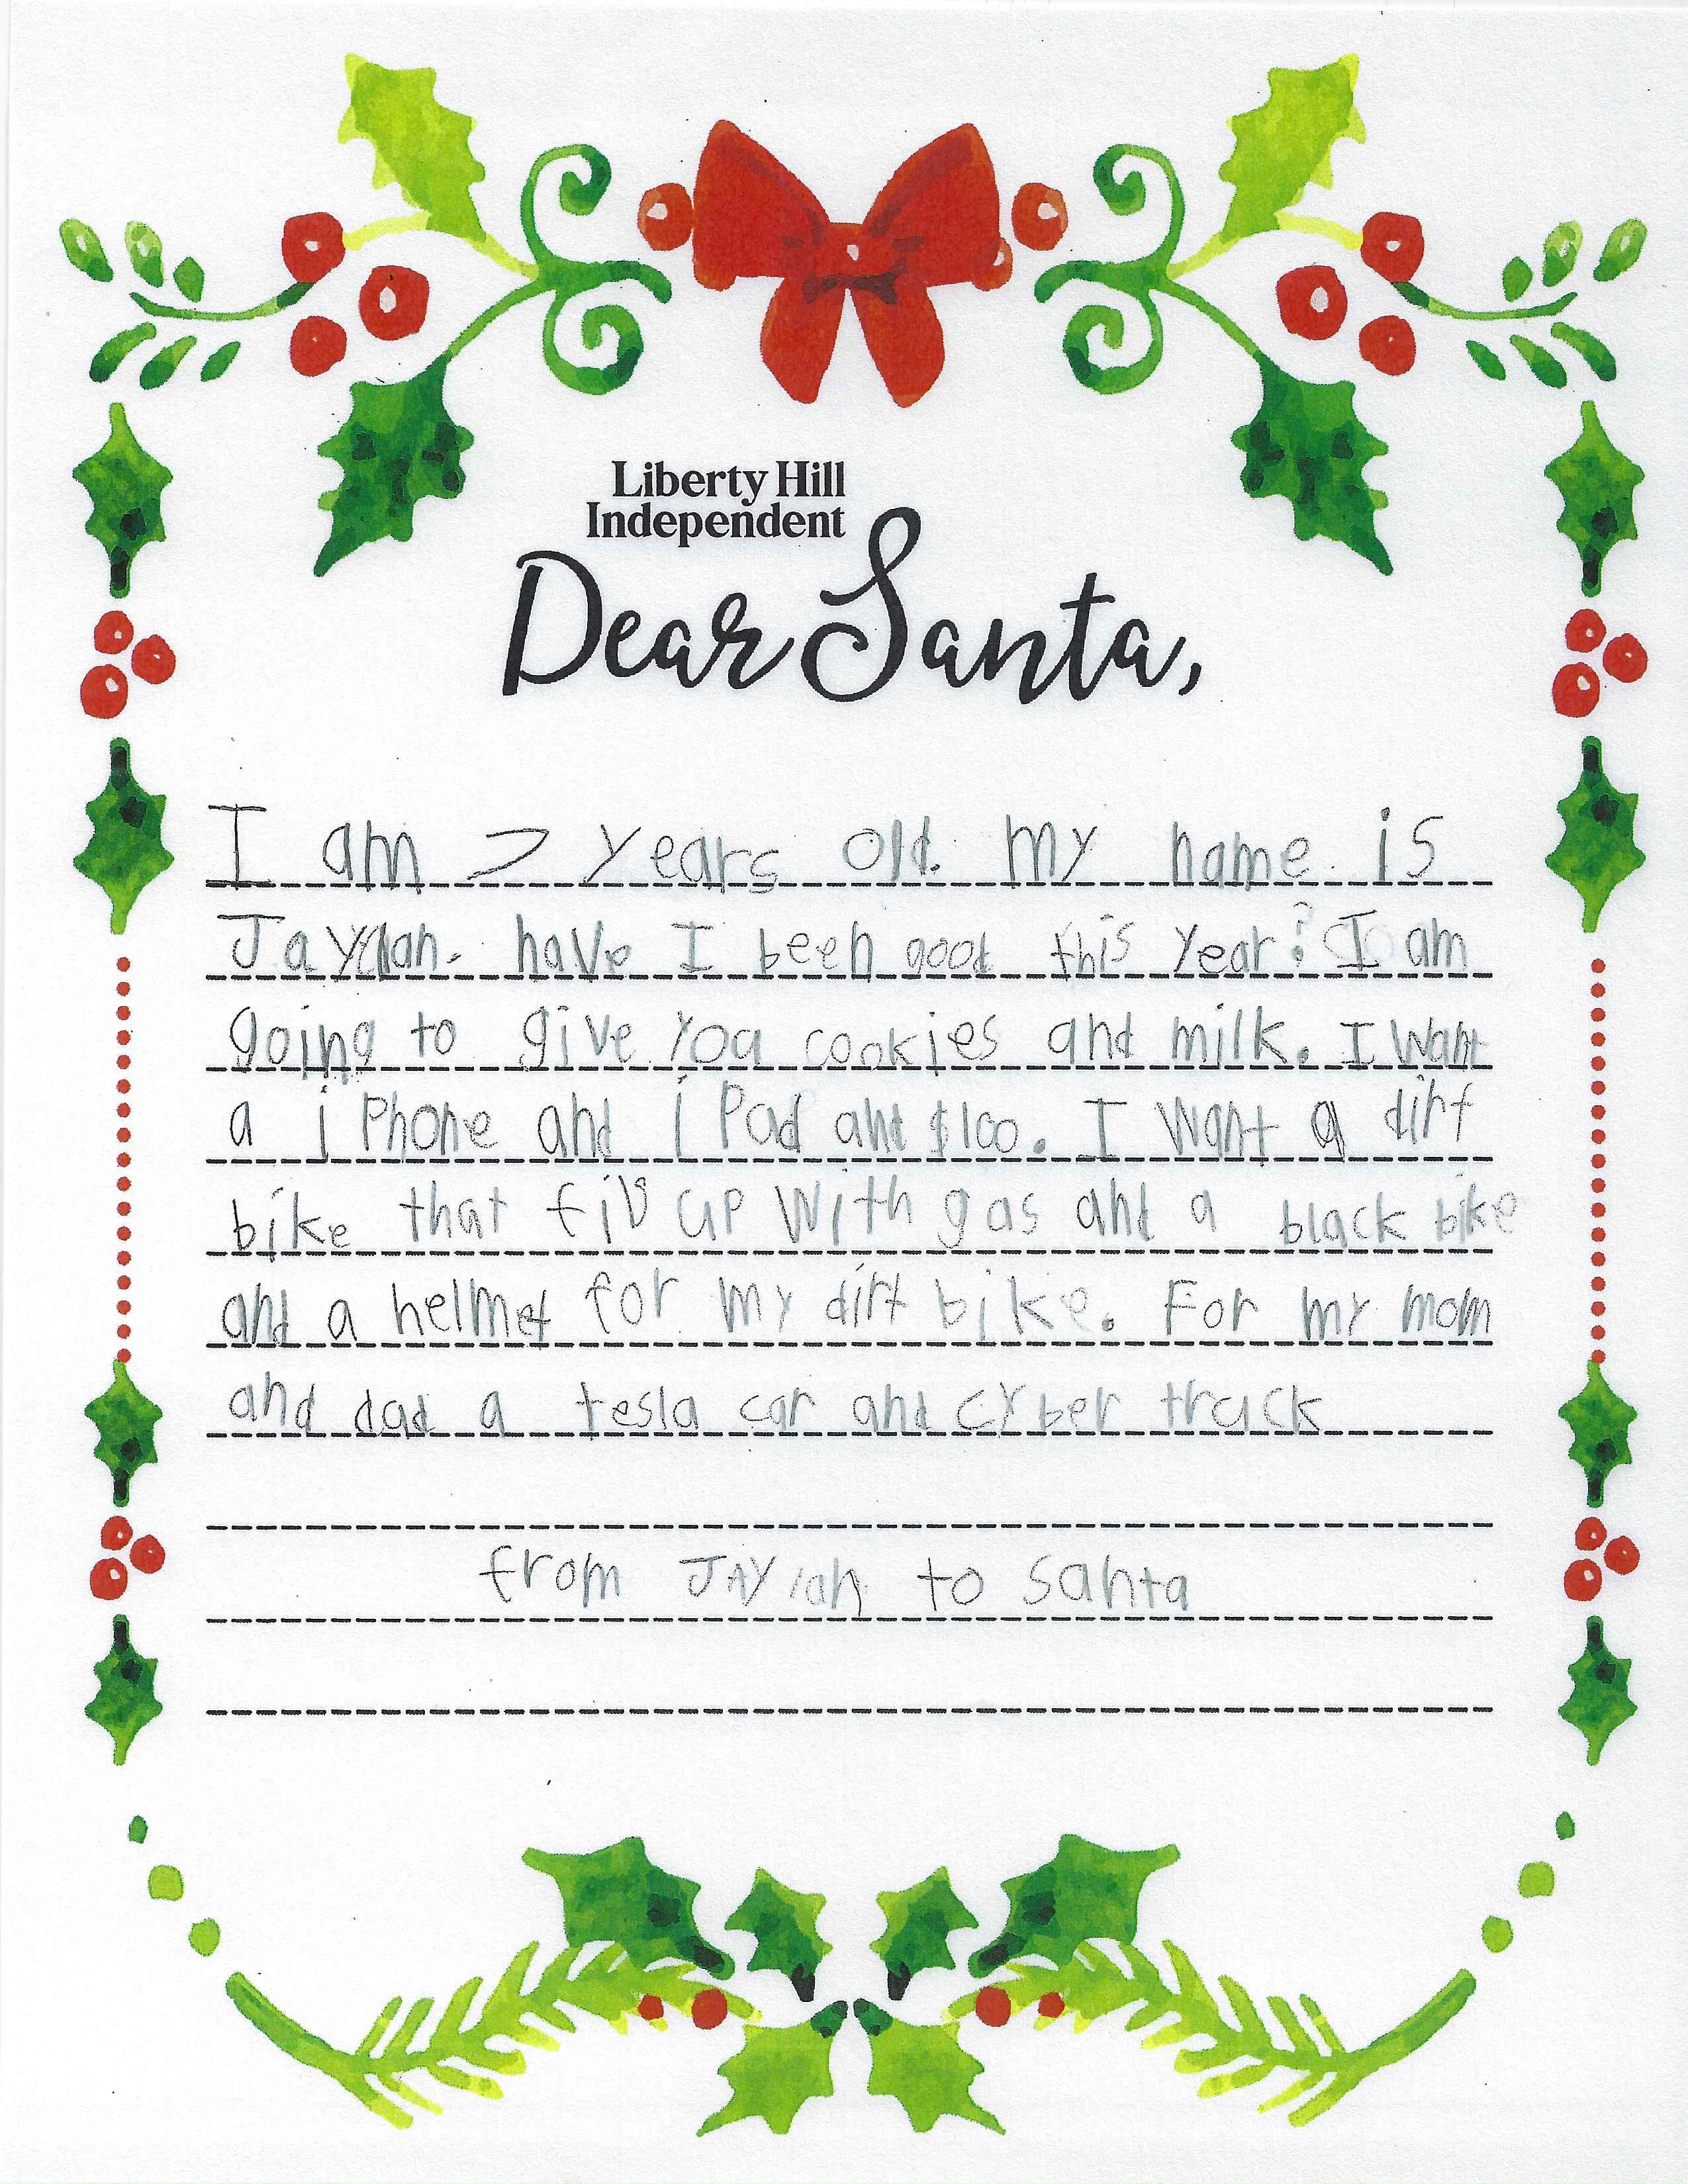 Liberty Hill
Independent
Dear Santa,
I am 7 years old. my name is
Jaylan. have I been good this year? I am
going to give you cookies and milk. I want
a i Phone and i Pad and $100. I want a dirt
bike that fil up with gas and a black bike
and a helmet for my dirt bike. For my mom
and dad a tesla car and cyber truck
from JAYlan to santa